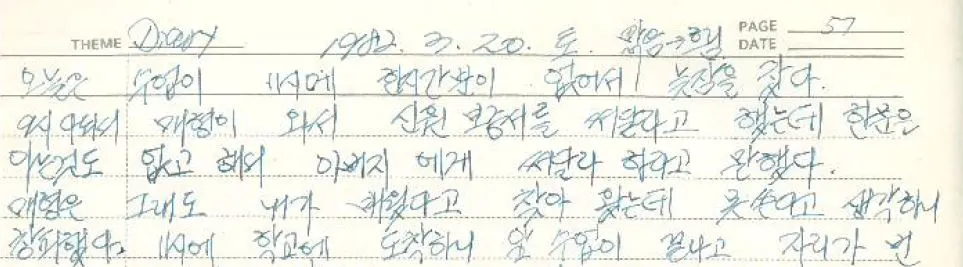 THEME Diary 1982. 3. 20. 토. 맑음→흐림 PAGE 57
DATE
오늘은 수업이 11시에 한시간뿐이 없어서 늦잠을 잤다.
9시 쯤 매형이 와서 신원 보증서를 써달라고 했는데 한문은
아는것도 없고 해서 아버지 에게 써달라 하라고 말했다.
매형은 그래도 내가 배웠다고 찾아 왔는데 못 쓴다고 생각하니
창피했다. 11시에 학교에 도착하니 앞 수업이 끝나고 자리가 빈